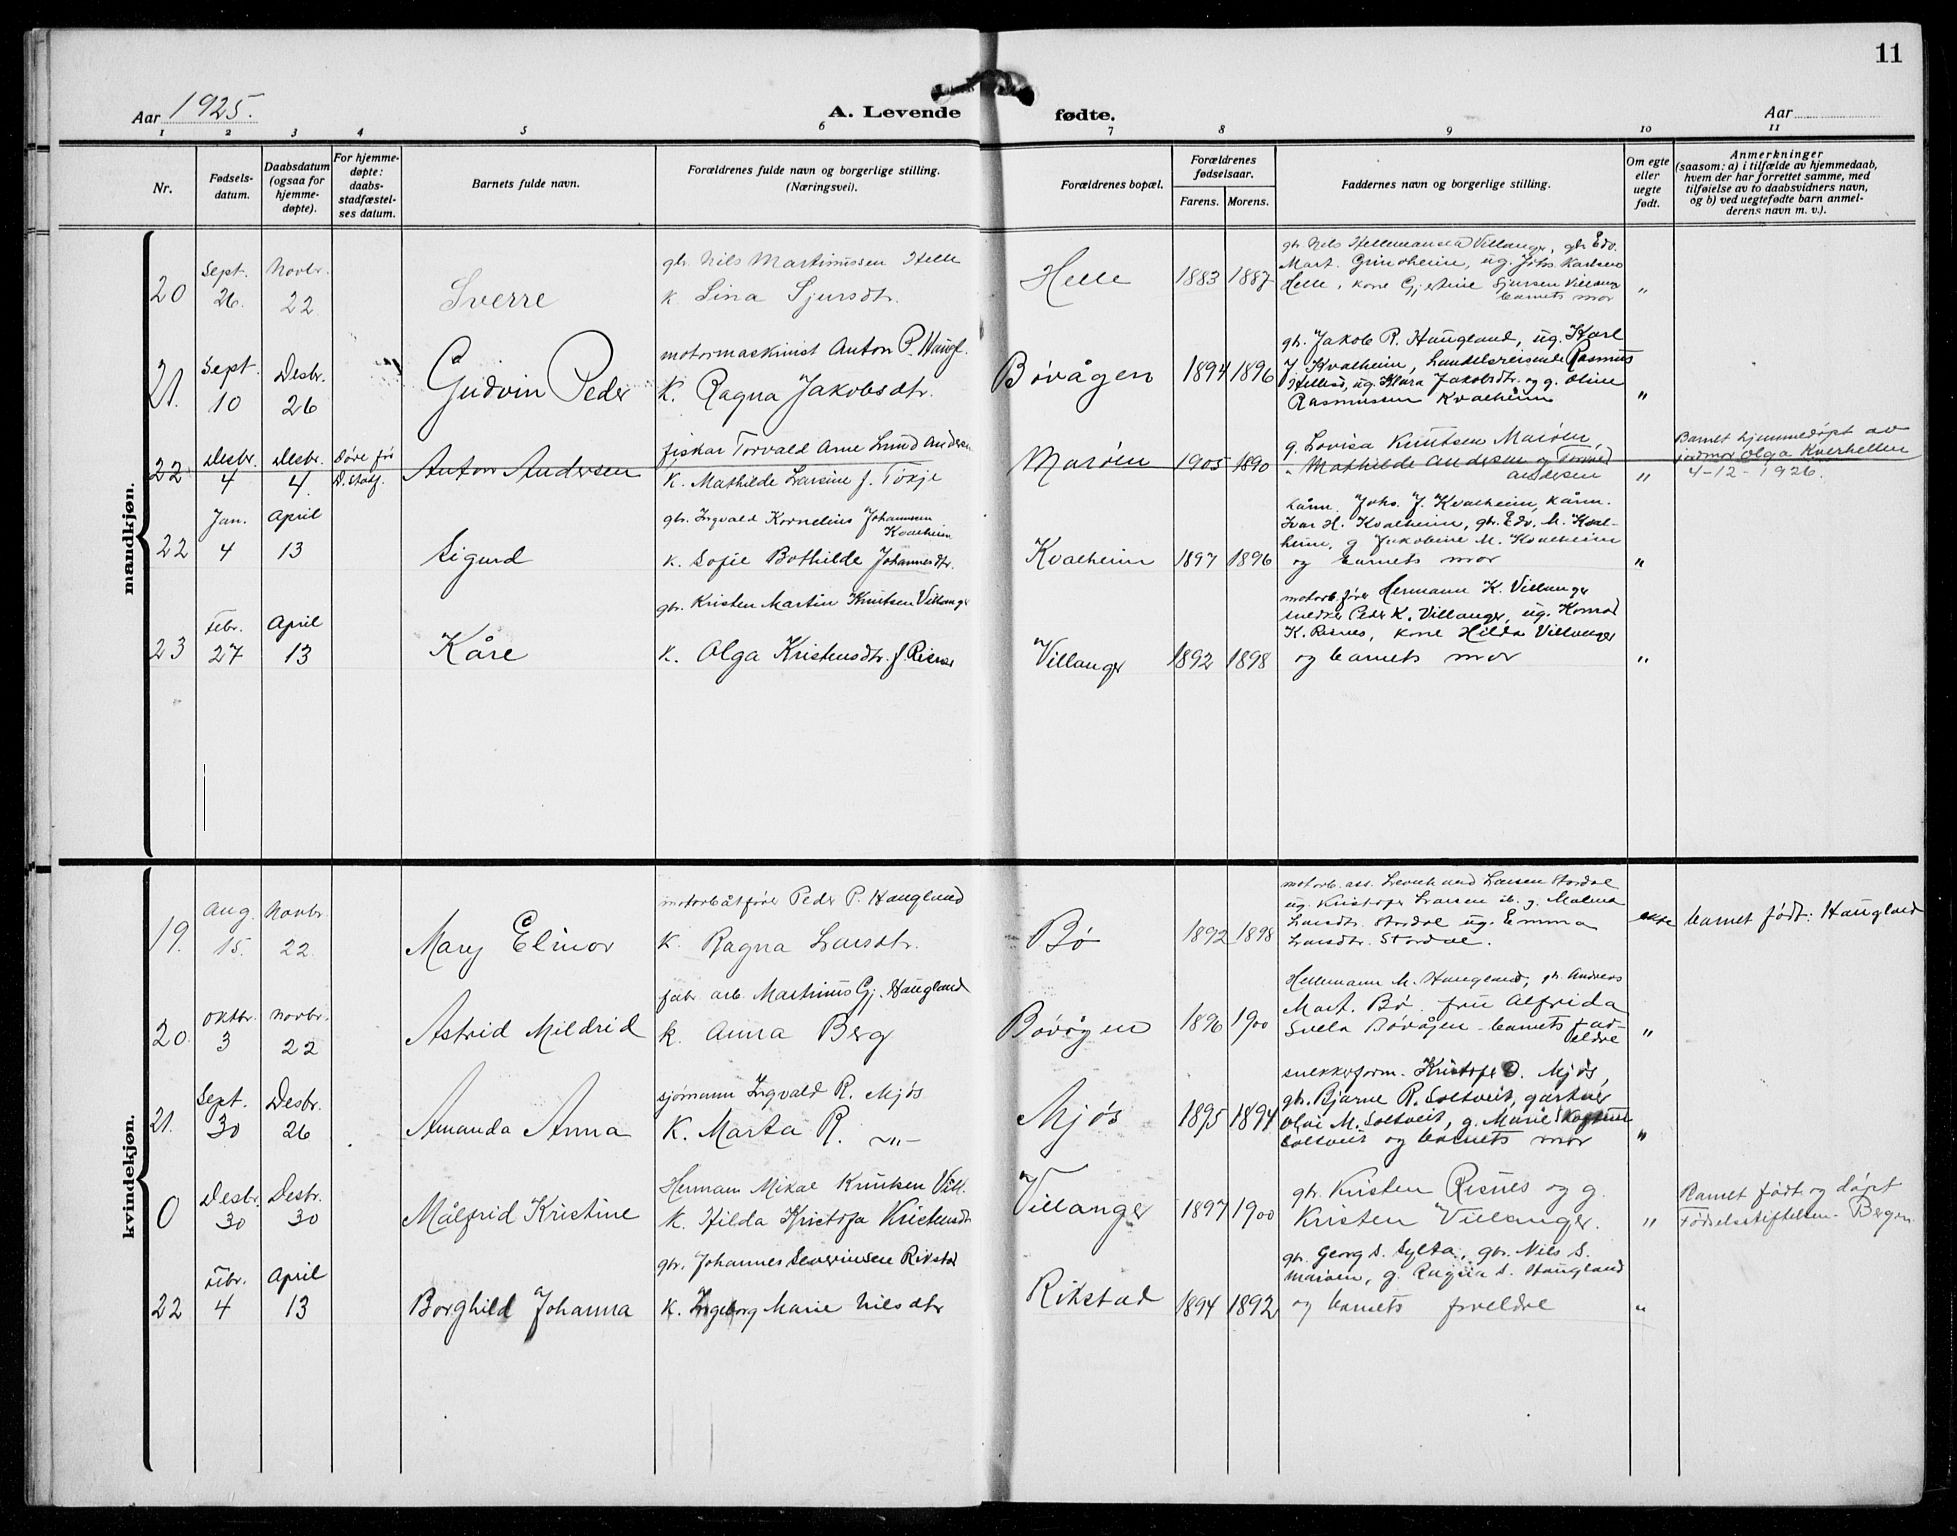 11
Aar 1925.
A. Levende fødte.
Aar
1 2 3 4 5 6 7 8 9 10 11
Nr.
Fødselsdatum.
Daabsdatum (ogsaa for hjemmedøpte).
For hjemmedøpte: daabsstadfæstelses datum.
Barnets fulde navn.
Forældrenes fulde navn og borgerlige stilling. (Næringsvei).
Forældrenes bopæl.
Forældrenes fødselsaar.
Farens. Morens.
Faddernes navn og borgerlige stilling.
Om egte eller uegte født.
Anmerkninger
(saasom: a) i tilfælde av hjemmedaab,
hvem der har forrettet samme, med
tilføielse av to daabsvidners navn,
og b) ved uegtefødte barn anmelderens navn m. v.).
mandkjøn.
20 Sept. 26 Novbr. 22
Sverre
gbr. Nils Martinussen Helle
k. Lina Sjursdtr.
Helle 1883 1887
gbr. Nils Hellemansen Villanger, gbr. Edv.
Mart. Grindheim, ug. Johs. Karlsen
Helle, kone Gjertine Sjursen Villanger
barnets mor "
21. Sept. 10 Desbr. 26
Gudvin Peder
motormaskinist Anton P. Haugl.
K. Ragna Jakobsdtr.
Bøvågen 1894 1896
gbr. Jakob R. Haugland, ug. Karl
J. Kvalheim, handelsreisende Rasmus
Hellesø, ug. Klara Jakobsdtr. og g. Oline
Rasmussen Kvalheim "
22 Desbr. 4 Desbr. 4.
Anton Andersen
fiskar Torvald Arne Lund Andersen
K. Mathilde Larsine f. Toxje
Marøen 1905 1890
g. Lovisa Knutsen Marøen,
" Mathilde Andersen og Torvald
Andersen "
Barnet hjemmedøpt av
jordmor Olga Kverhellen
4-12-1926.
22 Jan. 4 April 13
Sigurd
gbr. Ingvald Kornelius Johannsen
Kvalheim
k. Sofie Bothilde Johannesdtr.
Kvalheim 1897 1896
kårm. Johs. J. Kvalheim, kårm.
Ivar H. Kvalheim, gbr. Edv. M. Kvalheim, g Jakobine M. Kvalheim
og barnets mor "
23 Febr. 27 April 13
Kåre
gbr. Kristen Martin Knutsen Villanger
k. Olga Kristensdtr. f. Risnes
Villanger 1892 1898
motorb.fører Hermann K. Villanger
snedker Peder K. Villanger, ug. Konrad
K. Risnes, kone Hilda Villanger
og barnets mor "
kvindekjøn.
19. Aug. 15. Novbr. 22
Mary Elinor
motorbåtfører Peder P. Haugland
K. Ragna Larsdtr.
Bø 1892 1898
motorb. ass. Larsen Stordal
ug. Kristofer Larsen ib. g. Malena
Larsdtr. Stordal ug. Emma
Larsdtr. Stordal.
ekte
barnet født: Haugland
20. Oktbr. 3 Novbr. 22
Astrid Mildrid
fabr. arb. Martinus Gj. Haugland
k. Anna Berg
Bøvågen 1896 1900
Hellemann M. Haugland, gbr. Andreas
Mart. Bø. fru Alfrida
Sæle Bøvågen. barnets foreldre "
21. Sept. 30 Desbr. 26
Amanda Anna
sjømann Ingvald R. Mjøs
K. Marta R. -"-
Mjøs 1895 1894
snekkerform. Kristofer O. Mjøs,
gbr. Bjarne R. Soltveit, gartner
Olai M. Soltveit, g. Marie
Soltveit og barnets mor "
0 Desbr. 30 Desbr. 30
Målfrid Kristine
Hermann Mikal Knutsen Vill.
k. Hilda Kristofa Kristensdtr
Villanger 1897 1900
gbr. Kristen Risnes og g.
Kristen Villanger. "
Barnet født og døpt
Fødselsstiftelsen - Bergen.
22 Febr. 4 April 13
Borghild Johanna
gbr. Johannes Severinsen Rikstad
k. Ingeborg Marie Nilsdtr
Rikstad 1894 1892
gbr. Georg S. Sylta, gbr. Nils S.
Marøen, g. Ragna S. Haugland
og barnets foreldre "